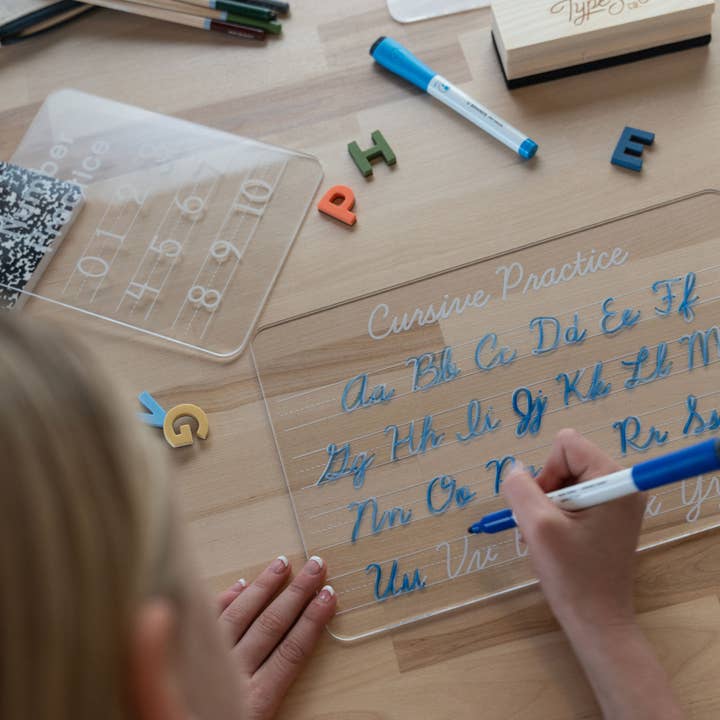 Type
H
E
P
Number
Practice
0 1 2 3
4 5 6
8 9 10
Y
G
Cursive Practice
Aa Bb Cc Dd Ee Ff
Gg Hh Ii Jj Kk Ll M
Nn Oo Rr Ss
Uu Vv